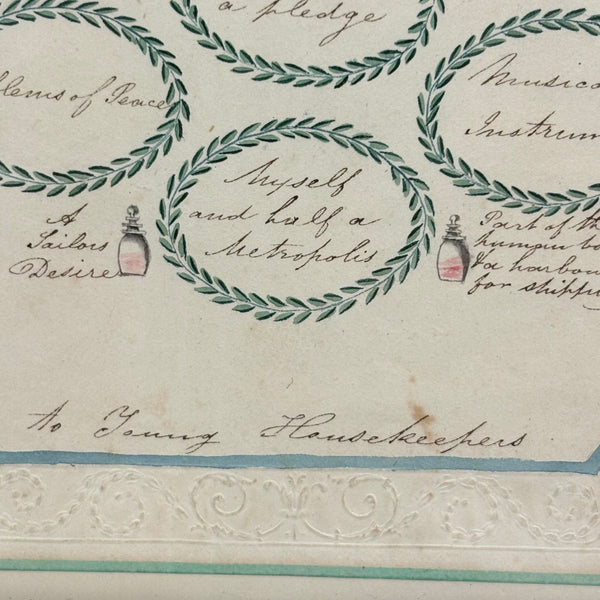 a pledge
blems of Peace
Musica
Instrum
Myself
and half a
Metropolis
A
Sailors
Desire
Part of the
human bo
& a harbou
for shippi
to Young Housekeepers